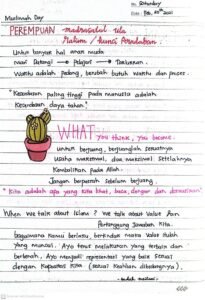 No. Saturday
Date: Feb, 20th 2021
Muslimah Day
PEREMPUAN = madrasatul ula
Maslim / kunci Peradaban.
Untuk banyak hal anak muda
Mau Datang → Pelajar → Tantangan.
Waktu adalah pedang, berubah butuh waktu dan proses.
"Kecerdasan paling tinggi pada manusia adalah
Kecerdasan daya tahan."
WHAT you think, you become.
untuk berjuang, berjuanglah sesuatunya
Usaha maksimal, doa maksimal Setelahnya
Kembalikan pada Allah.
Jangan berpuruh sebelum berjuang.
"Kita adalah apa yang kita lihat, baca, dengar dan
When We talk about Islam? We talk about Value Aim
Pertanggung Jawaban Kita.
bagaimana Kamu berilmu, bertindak maka Value itulah
yang muncul. Ayo terus melakukan yang terbaik dan
berbenah, Ayo menjadi representatif yang baik sesuai
dengan Kapasitas Kita (sesuai Keahlian dibidangnya).